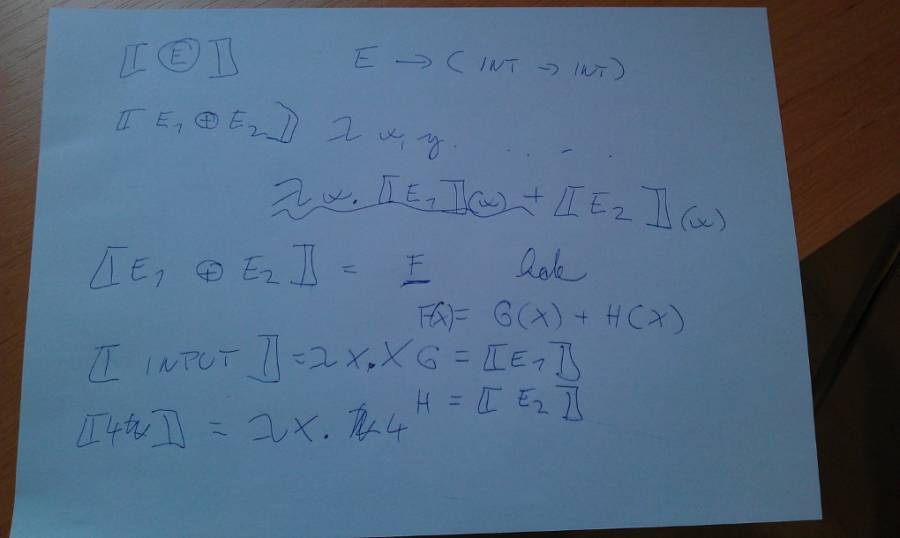 ⟦E⟧ E → (INT → INT)
⟦E₁ ⊕ E₂⟧ λx,y. . . - .
λx.⟦E₁⟧(x) + ⟦E₂⟧(x)
⟦E₁ ⊕ E₂⟧ = F
F(x) = G(X) + H(X)
⟦INPUT⟧ = λX.X G = ⟦E₁⟧
H = ⟦E₂⟧
⟦4⟧ = λX. 4